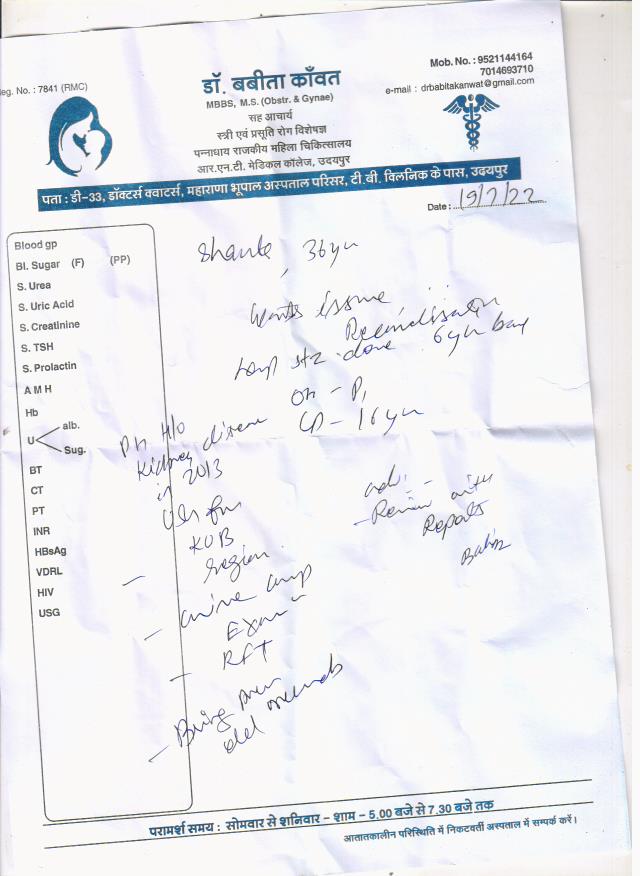 Reg. No. : 7841 (RMC)
डॉ. बबीता काँवत
MBBS, M.S. (Obstr. & Gynae)
सह आचार्य
स्त्री एवं प्रसूति रोग विशेषज्ञ
पन्नाधाय राजकीय महिला चिकित्सालय
आर.एन.टी. मेडिकल कॉलेज, उदयपुर
Mob. No. : 9521144164
7014693710
e-mail : drbabitakanwat@gmail.com
पता : डी-33, डॉक्टर्स क्वाटर्स, महाराणा भूपाल अस्पताल परिसर, टी.बी. क्लिनिक के पास, उदयपुर
Date : 19/7/22
Blood gp
Bl. Sugar (F) (PP)
S. Urea
S. Uric Acid
S. Creatinine
S. TSH
S. Prolactin
A M H
Hb
U alb.
Sug.
BT
CT
PT
INR
HBsAg
VDRL
HIV
USG
36 yr
wants issue
done 6 yr back
16 yr
H/o
Kidney disease
in 2013
USG for
KUB
region
- urine
Exam
- RFT
- Bring
old records
adv.
- Review with
Reports
परामर्श समय : सोमवार से शनिवार - शाम - 5.00 बजे से 7.30 बजे तक
आतातकालीन परिस्थिति में निकटवर्ती अस्पताल में सम्पर्क करें।